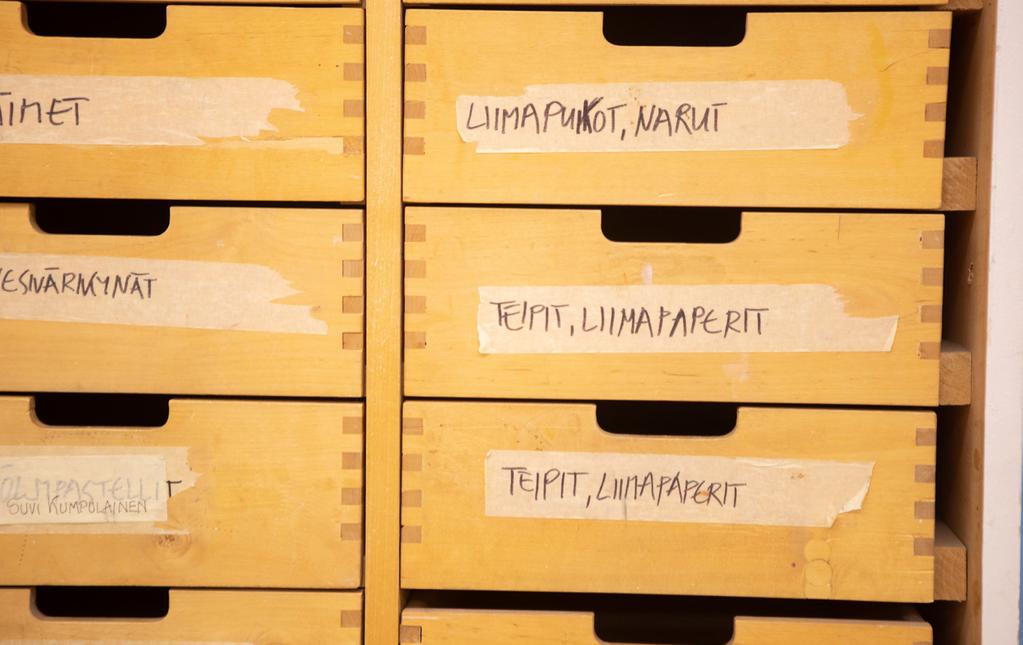 TIMET
LIIMAPUIKOT, NARUT
VESIVÄRIKYNÄT
TEIPIT, LIIMAPAPERIT
ÖLJYPASTELLIT
SUVI KUMPULAINEN
TEIPIT, LIIMAPAPERIT